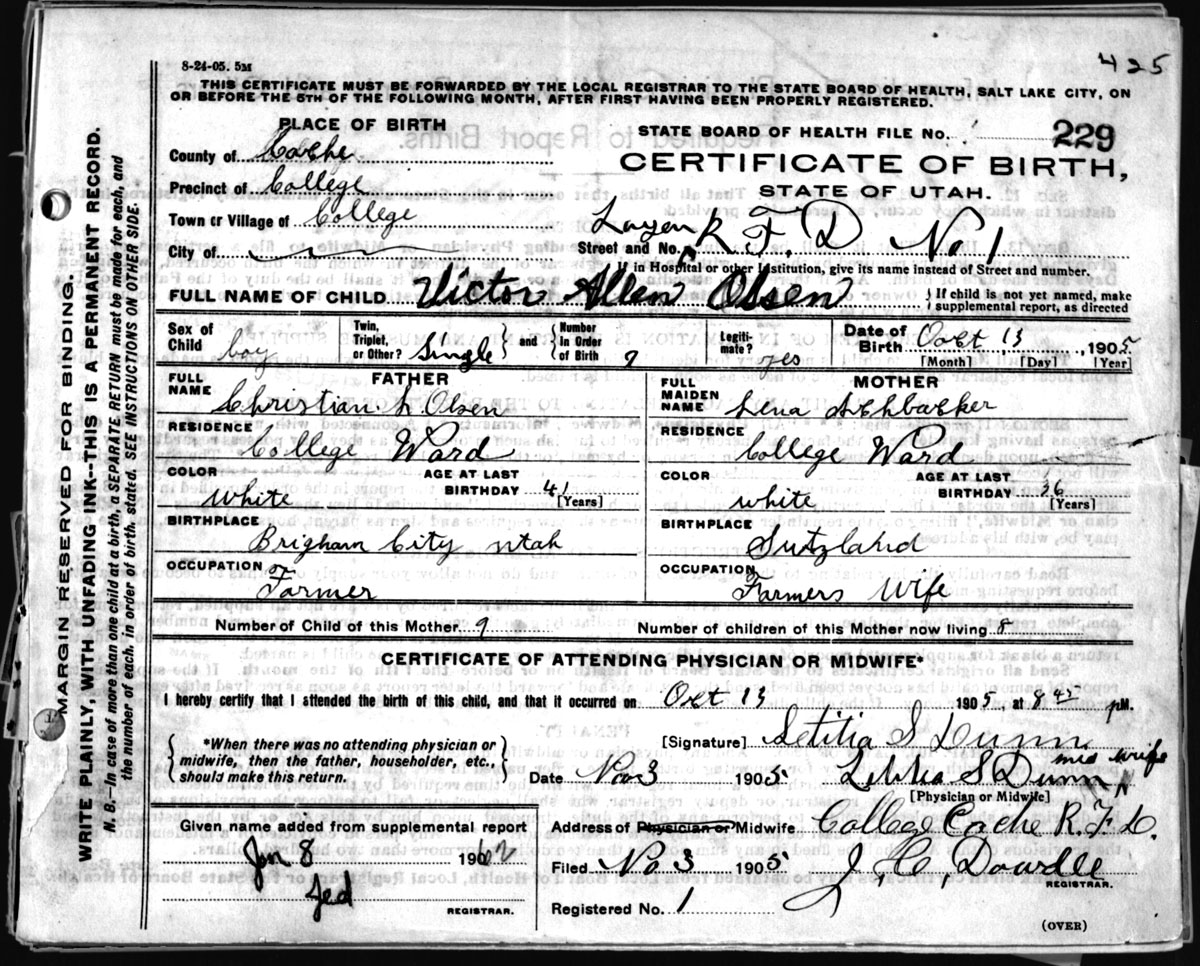 425
8-24-05. 5M
THIS CERTIFICATE MUST BE FORWARDED BY THE LOCAL REGISTRAR TO THE STATE BOARD OF HEALTH, SALT LAKE CITY, ON
OR BEFORE THE 5TH OF THE FOLLOWING MONTH, AFTER FIRST HAVING BEEN PROPERLY REGISTERED.
PLACE OF BIRTH
County of Cache
Precinct of College
Town or Village of College
City of
STATE BOARD OF HEALTH FILE No. 229
CERTIFICATE OF BIRTH,
STATE OF UTAH.
Street and No. R F D No 1
If in Hospital or other Institution, give its name instead of Street and number.
FULL NAME OF CHILD Victor Allen Olsen { If child is not yet named, make
supplemental report, as directed
Sex of Child boy
Twin, Triplet, or Other? Single } and { Number in Order of Birth 9
Legiti-mate? yes
Date of Birth Oct 13, 1905
[Month] [Day] [Year]
FATHER
FULL NAME Christian L Olsen
RESIDENCE College Ward
COLOR White
AGE AT LAST BIRTHDAY 41 [Years]
BIRTHPLACE Brigham City utah
OCCUPATION Farmer
MOTHER
FULL MAIDEN NAME Lena
RESIDENCE College Ward
COLOR white
AGE AT LAST BIRTHDAY 36 [Years]
BIRTHPLACE Sutzland
OCCUPATION Farmers Wife
Number of Child of this Mother 9
Number of children of this Mother now living 8
CERTIFICATE OF ATTENDING PHYSICIAN OR MIDWIFE*
I hereby certify that I attended the birth of this child, and that it occurred on Oct 13 1905, at 8 45 PM.
{ *When there was no attending physician or
midwife, then the father, householder, etc.,
should make this return. }
[Signature] Letitia S Dunn
mid wife
Date Nov 3 1905 Letitia S Dunn
[Physician or Midwife]
Given name added from supplemental report
Jan 8 1962
Jed
REGISTRAR.
Address of Physician or Midwife College Cache R. F. D.
Filed No 3 1905 J, C, Dowdle
REGISTRAR.
Registered No. 1
(OVER)
MARGIN RESERVED FOR BINDING.
WRITE PLAINLY, WITH UNFADING INK--THIS IS A PERMANENT RECORD.
N. B.—In case of more than one child at a birth, a SEPARATE RETURN must be made for each, and
the number of each, in order of birth, stated. SEE INSTRUCTIONS ON OTHER SIDE.